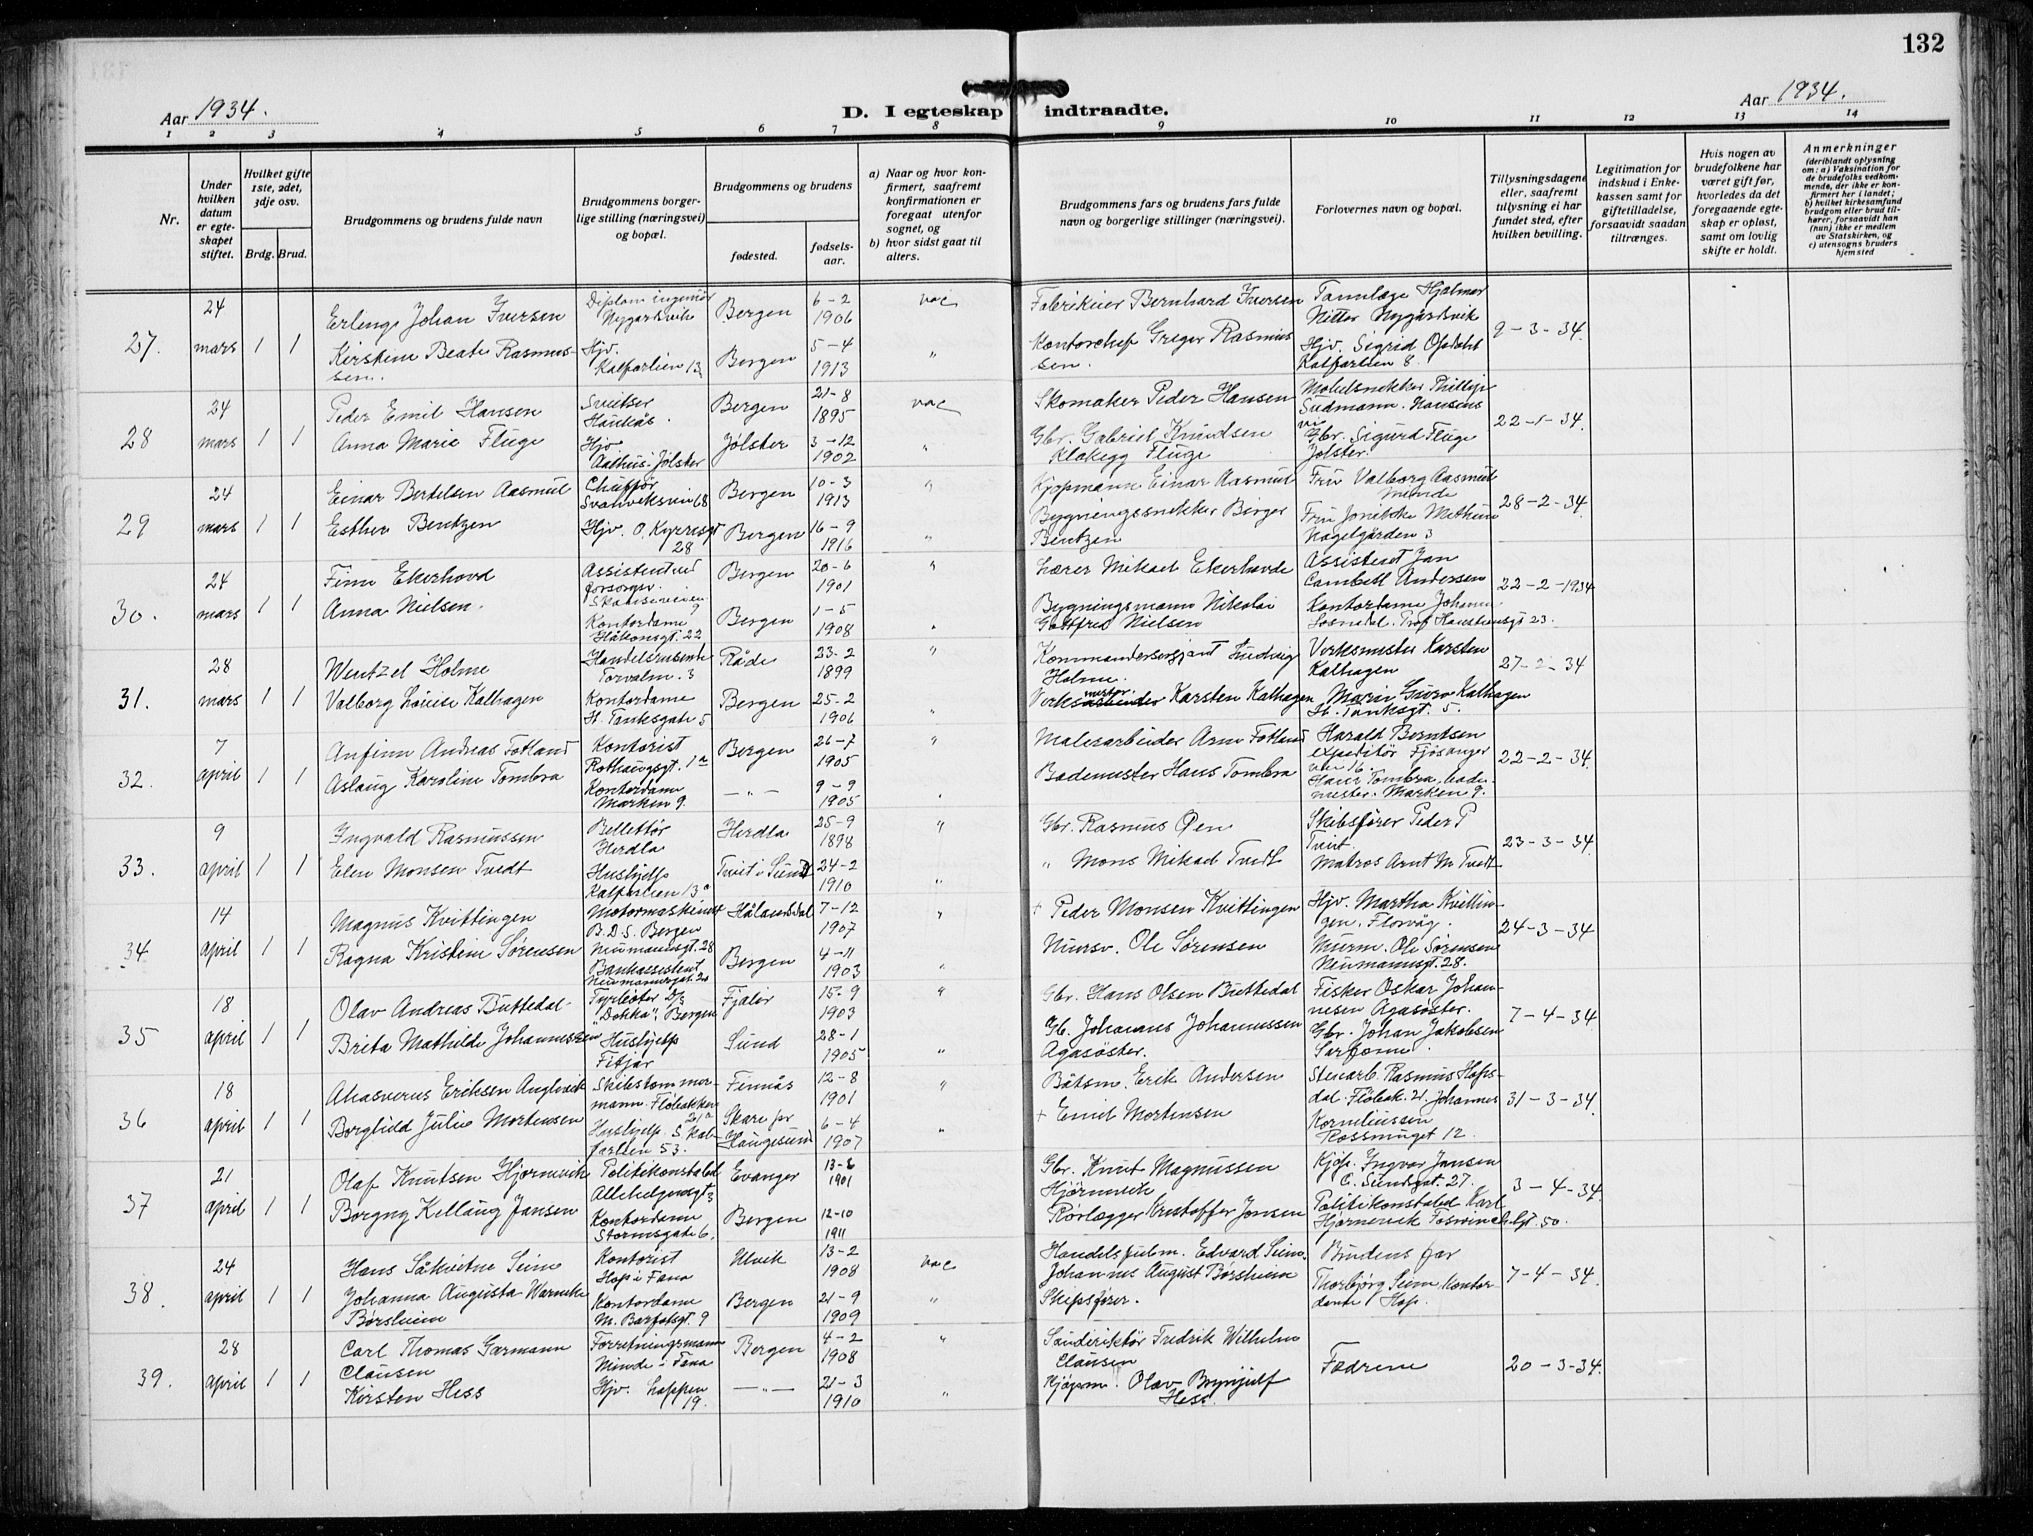 132
Aar 1934.
Aar 1934.
D. I egteskap indtraadte.
1 2 3 4 5 6 7 8 9 10 11 12 13 14
Nr.
Under hvilken datum er egteskapet stiftet.
Hvilket gifte 1ste, 2det, 3dje osv.
Brdg. Brud.
Brudgommens og brudens fulde navn
Brudgommens borgerlige stilling (næringsvei) og bopæl.
Brudgommens og brudens
fødested.
fødselsaar.
a) Naar og hvor konfirmert, saafremt konfirmationen er foregaat utenfor sognet, og
b) hvor sidst gaat til alters.
Brudgommens fars og brudens fars fulde navn og borgerlige stillinger (næringsvei).
Forlovernes navn og bopæl.
Tillysningsdagene eller, saafremt tillysning ei har fundet sted, efter hvilken bevilling.
Legitimation for indskud i Enkekassen samt for giftetilladelse, forsaavidt saadan tiltrænges.
Hvis nogen av brudefolkene har været gift før, hvorledes da det foregaaende egteskap er opløst, samt om lovlig skifte er holdt.
Anmerkninger
(deriblandt oplysning om: a) Vaksination for de brudefolks vedkommende, der ikke er konfirmert her i landet; b) hvilket kirkesamfund brudgom eller brud tilhører, forsaavidt han (hun) ikke er medlem av Statskirken, og c) utensogns bruders hjemsted
27. 24 mars 1 1
Erling Johan Iversen
Diplom ingeniør Nygårdsvik
Bergen
6-2 1906
vac
Fabrikeier Bernhard Iversen
Tannlæge Hjalmar Nitter Nygårdsvik
9-3-34.
Kirsten Beate Rasmussen.
Hjv. Kalfarlien 13
Bergen
5-4 1913
"
Kontorchef Greger Rasmussen.
Hjv. Sigrid Opdahl Kalfarlien 8.
28 24 mars 1 1
Peder Emil Hansen
Haukås.
Bergen
21-8 1895
vac
Skomaker Peder Hansen
Møbelsnekker Phillip Sudmann. Hansens vei
22-1-34.
Anna Marie Fluge
Hjv Aalhus. Jølster
Jølster
3-12 1902
"
Gbr. Gabriel Knudsen Klakegg Fluge
Gbr. Sigurd Fluge Jølster.
29 24 mars 1 1
Einar Bertelsen Aasmul
Svaneviksvei 68
Bergen
10-3 1913
"
Kjøpmann Einar Aasmul
Fru Valborg Aasmul Minde
28-2-34.
Esther Bentzen
Hjv. O. Kyrresgt 28
Bergen
16-9 1916
"
Bygningssnekker Birger Bentzen
Fru Mathum Nagelgården 3
30. 24 mars 1 1
Finn Ekerhovd
Assistent ved forsorgsv.
Bergen
20-6 1901
"
Lærer Mikael Ekerhovde
Assistent Jan Cambell Andersen
22-2-1934
Anna Nielsen.
Kontordame Håkonsgt. 22
Bergen
1-5 1908
"
Bygningsmann Nikolai Gottfred Nielsen
Kontordame Johanne 23.
31. 28 mars 1 1
Wentzel Holme
Torvalm. 3
Råde
23-2 1899
"
Kommandersergjant Ludvig Holme.
Verksmester Karsten Kalhagen
27-2-34
Valborg Louise Kalhagen
Kontordame H. Tanksgate 5
Bergen
25-2 1906
"
Verksmester Karsten Kalhagen
Marie Guro Kalhagen H. Tanksgt. 5.
32. 7 april 1 1
Anfinn Andreas Fotland
Kontorist Rothaugsgt. 1a
Bergen
26-7 1905
"
Malerarbeider Arne Fotland
Harald Berntsen expeditør Fjøsangervei 16.
22-2-34.
Aslaug Karoline Tombra
Kontordame Marken 9.
— " —
9-9 1905
"
Bademester Hans Tombra
Hans Tombra, bademester. Marken 9.
33. 9 april 1 1
Ingvald Rasmussen
Bellettør Herdla
Herdla
25-9 1898
"
Gbr. Rasmus Øen
Skibsfører Peder P Tveit
23-3-34.
Elen Monsen Tvedt
Hushjelp Kalfarlien 13a
Tveit i Sund
24-2 1910
"
" Mons Mikael Tvedt
Matros Arnt M Tvedt
34 14 april 1 1
Magnus Kvittingen
Motormaskinist B.D.S. Bergen Neumannsgt. 28
Hålandsdal
7-12 1907
"
+ Peder Monsen Kvittingen
Hjv. Martha Kvittingen. Florvåg.
24-3-34
Ragna Kristine Sørensen
Bankassistent Neumannsgt. 28
Bergen
4-11 1903
"
Murm. Ole Sørensen
Murm. Ole Sørensen Neumannsgt. 28.
35 18 april 1 1
Olav Andreas Buttedal
Fyrbøter D/S "Dokka", Bergen
Fjaler
15-9 1903
"
Gbr. Hans Olsen Buttedal
Fisker Oskar Johannesen Agasøster.
7-4-34
Brita Mathilde Johannessen
Hushjelp Fitjar
Sund
28-1 1905
"
Gb. Johannes Johannessen Agasøster.
Gbr. Johan Jakobsen
36 18 april 1 1
Ahasverus Eriksen Anglevik
Skibstømmermann. Fløbakken 21a
Finnås
12-8 1901
"
Båtsm. Erik Andersen
Stenarb. Rasmus Hopsdal. Fløbak. 21.
31-3-34.
Borghild Julie Mortensen
Hushjelp. S. Kalfarlien 53.
Skare for Haugesund
6-4 1907
"
+ Emil Mortensen
Johannes Korneliussen Rossmuget 12.
37 21 april 1 1
Olaf Knutsen Hjørnevik
Politikonstabel Allehelgensgt 3
Evanger
13-8 1901
Gbr. Knut Magnussen Hjørnevik
Kjøp. Ingvar Jansen C. Sundsgt. 27.
3-4-34.
Borgny Kellaug Jansen
Kontordame Stormsgate 6.
Bergen
12-10 1911
Rørlægger Kristoffer Jansen
Politikonstabel Karl Hjørnevik 50.
38. 24 april 1 1
Hans Såkvitne Seim
Kontorist Hop i Fana
Ulvik
13-2 1908
vac
Handelsfulm. Edvard Seim.
Brudens far
7-4-34.
Johanna Augusta Warncke Børsheim
Kontordame M. Barfotsgt. 9
Bergen
21-9 1909
"
Johannes August Børsheim Skipsfører.
Thorbjørg Seim, kontordame Hop.
39. 28 april 1 1
Carl Thomas Garmann Clausen
Forretningsmann Minde i Fana
Bergen
4-2 1908
"
Fredrik Wilhelm Clausen
Fædrene
20-3-34.
Kirsten Hess
Hjv. Loppen 19.
— " —
21-3 1910
"
Kjøpm. Olav Brynjulf Hess.